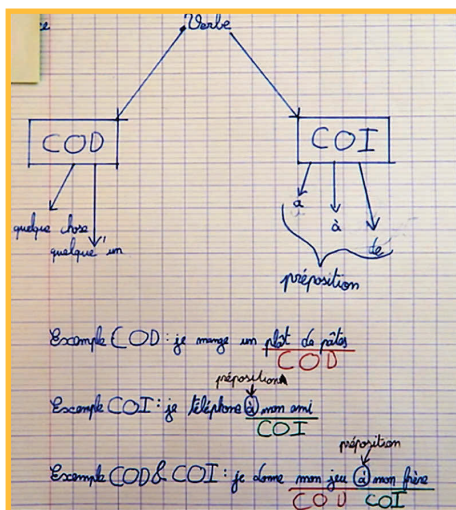 ce
Verbe
COD
COI
quelque chose
quelqu'un
a
à
de
préposition
Exemple COD : je mange un plat de pâtes
COD
préposition
Exemple COI : je téléphone à mon ami
COI
préposition
Exemple COD & COI : je donne mon jeu à mon frère
COD COI